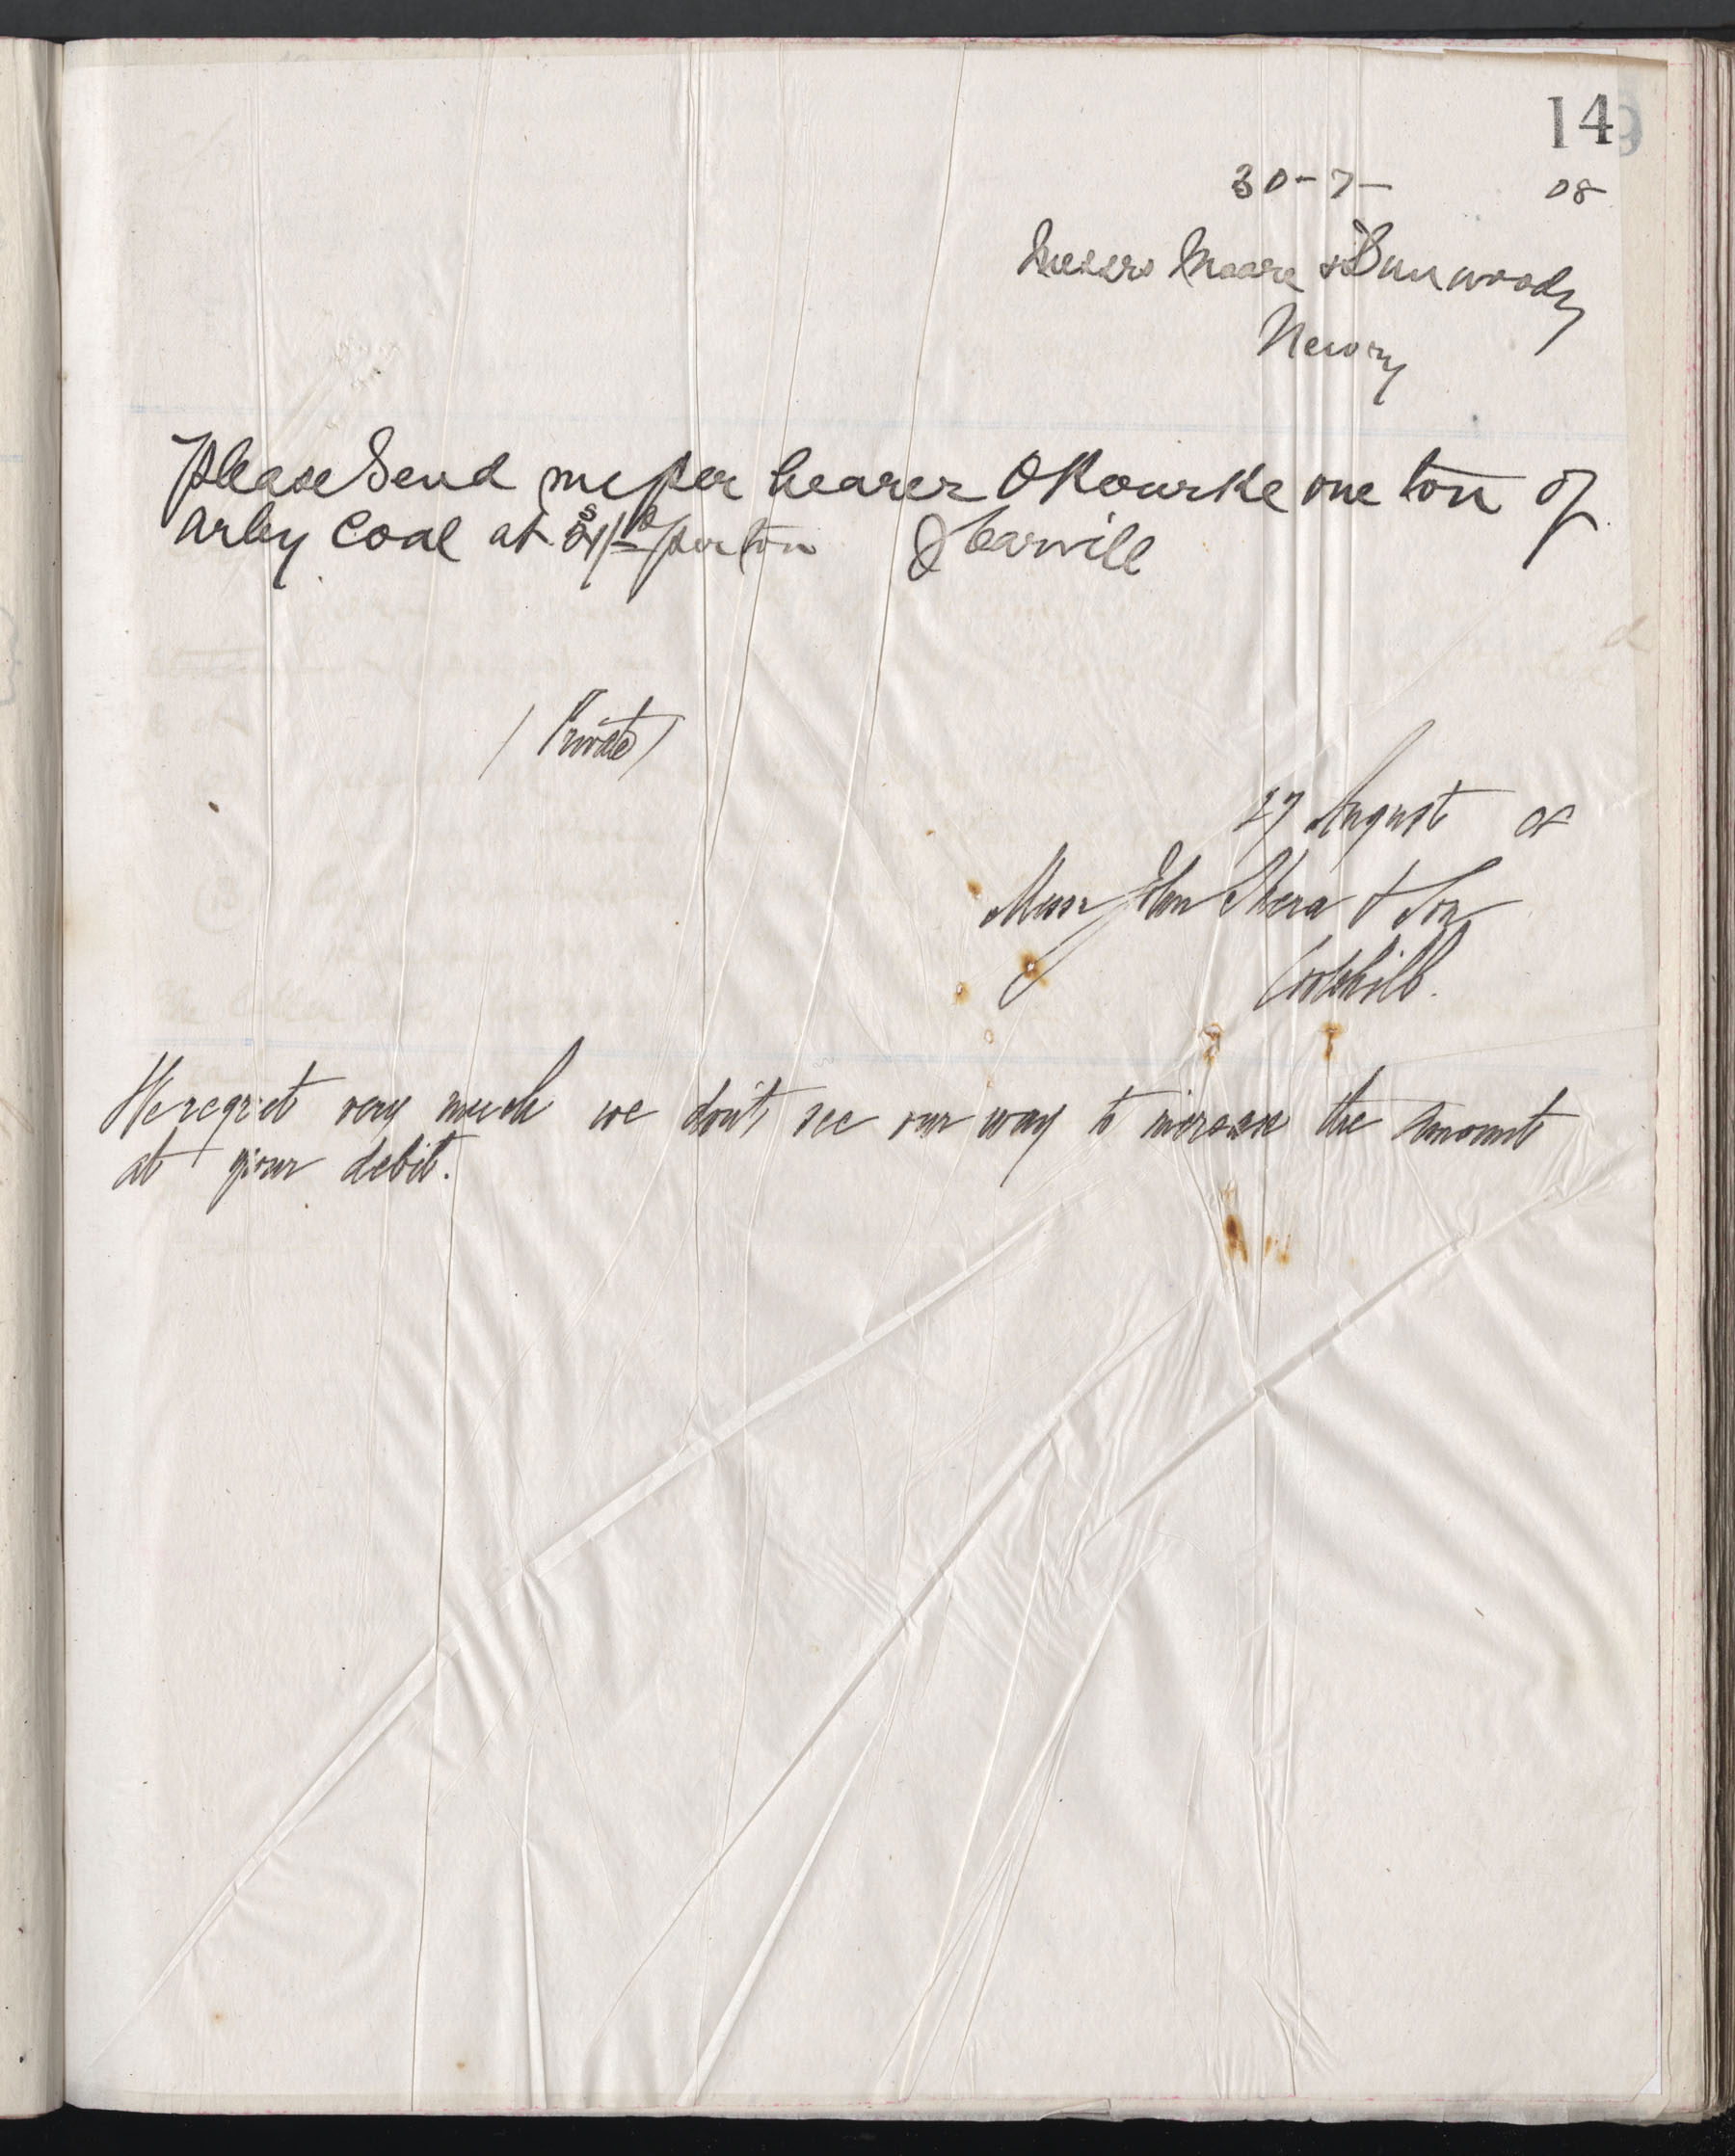 14
30-7- 08
Messrs Moore & Dunwoody
Newry
Please Send me per bearer O Rourke one ton of
Arley Coal at per ton J Carvill
(Private)
27 August 08
Messrs John Shera & Son
Cootehill.
We regret very much we don't see our way to increase the amount
at your debit.